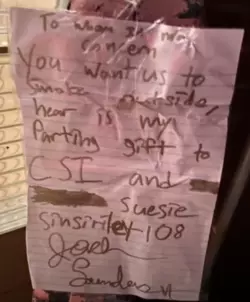 To whom it may
concern
You want us to
smoke outside,
hear is my
Parting gift to
CSI and
Suesie
sinsirley 108
Josh
Saunders